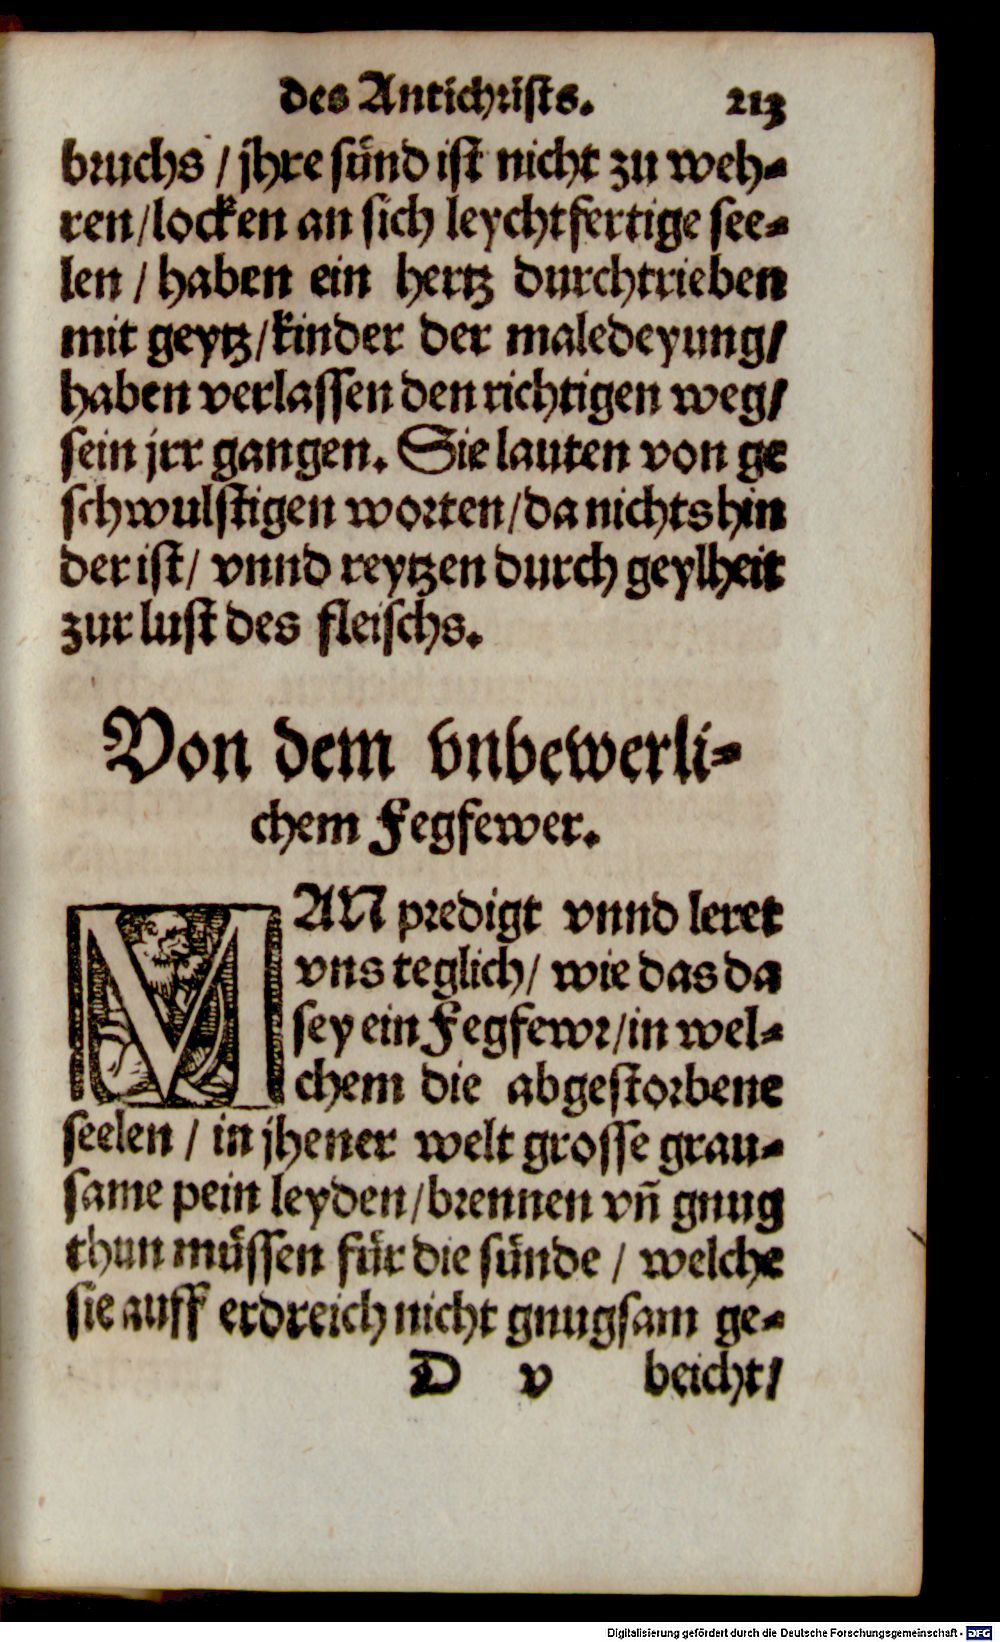 des Antichrists. 213
bruchs / jhre sünd ist nicht zu weh-
ren/locken an sich leychtfertige see-
len / haben ein hertz durchtrieben
mit geytz/kinder der maledeyung/
haben verlassen den richtigen weg/
sein jrr gangen. Sie lauten von ge
schwulstigen worten/da nichts hin
der ist/ vnnd reytzen durch geylheit
zur lust des fleischs.
Von dem vnbewerli-
chem Fegfewer.
MAN predigt vnnd leret
vns teglich/ wie das da
sey ein Fegfewr/in wel-
chem die abgestorbene
seelen / in jhener welt grosse grau-
same pein leyden/brennen vñ gnug
thun müssen für die sünde / welche
sie auff erdreich nicht gnugsam ge-
D v beicht/
Digitalisierung gefördert durch die Deutsche Forschungsgemeinschaft - DFG